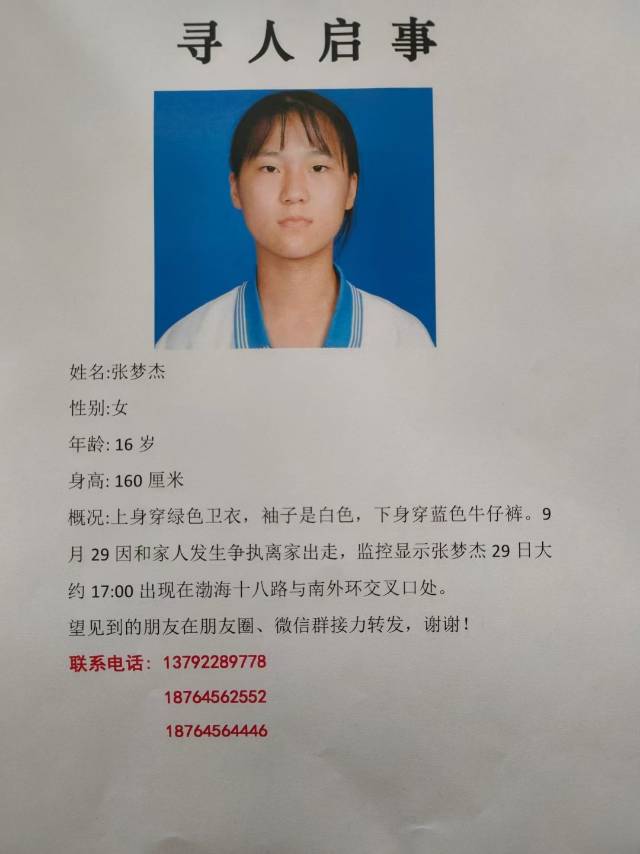 寻人启事
姓名:张梦杰
性别:女
年龄: 16 岁
身高: 160 厘米
概况:上身穿绿色卫衣，袖子是白色，下身穿蓝色牛仔裤。9
月 29 因和家人发生争执离家出走，监控显示张梦杰 29 日大
约 17:00 出现在渤海十八路与南外环交叉口处。
望见到的朋友在朋友圈、微信群接力转发，谢谢！
联系电话：13792289778
18764562552
18764564446